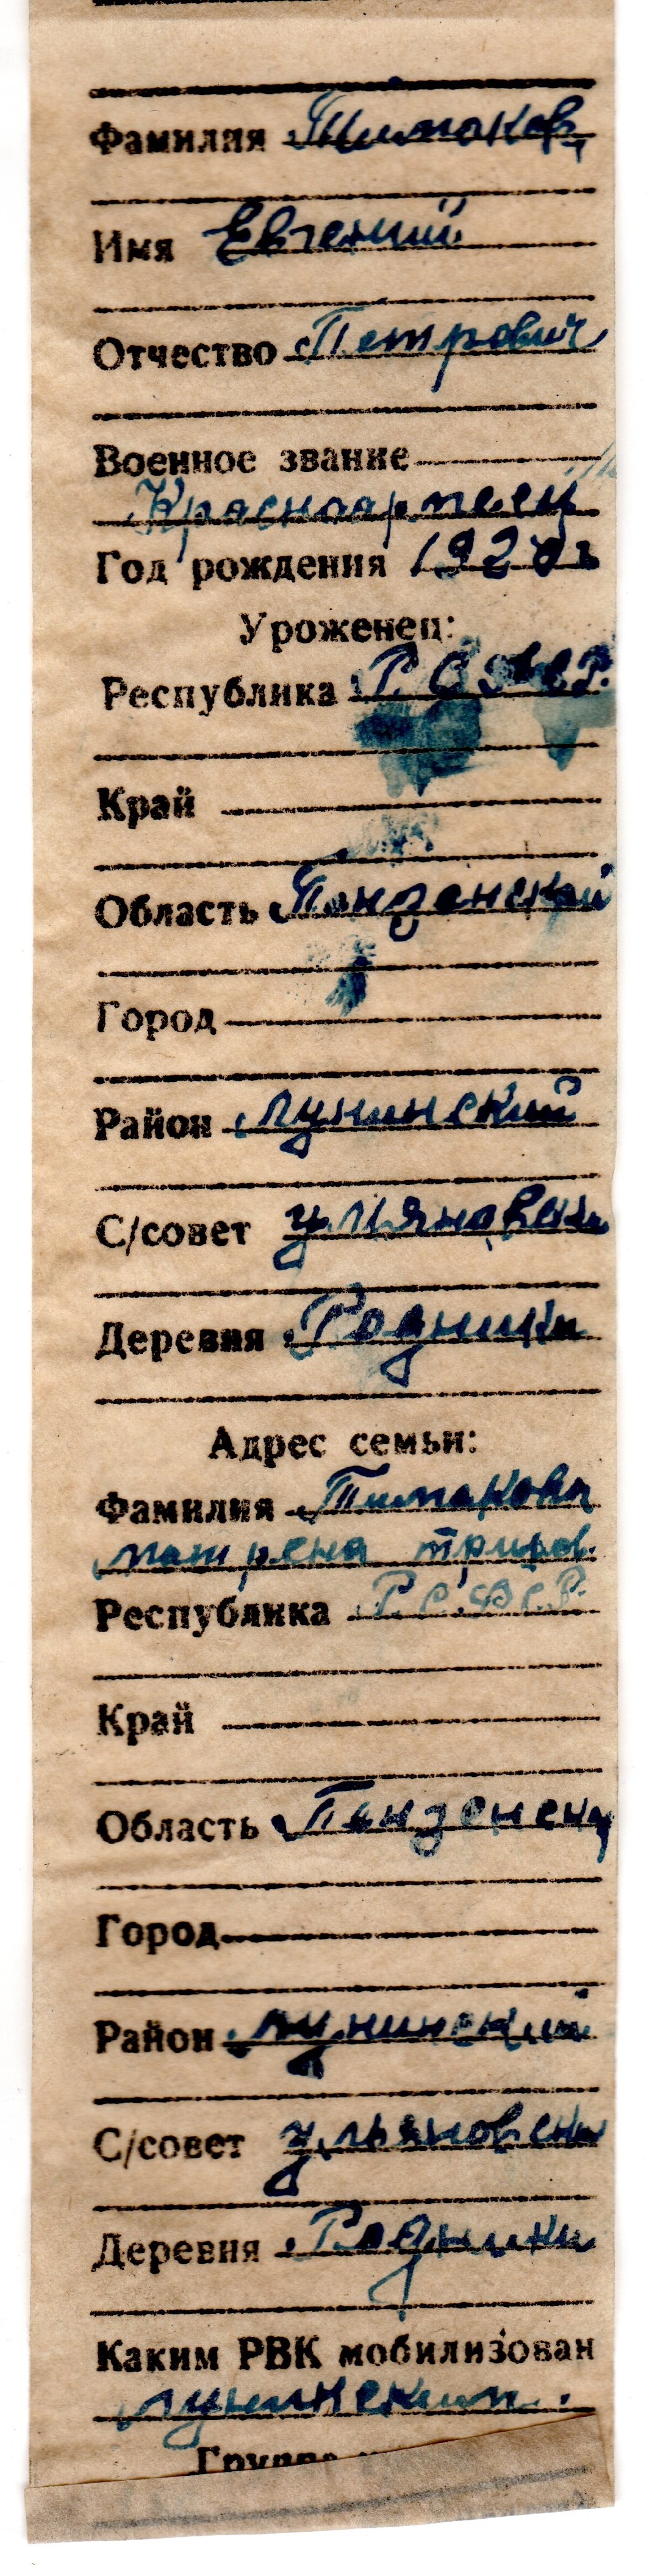 Фамилия Тимаков
Имя Евгений
Отчество Петрович
Военное звание
Красноармеец
Год рождения 1920 г
Уроженец:
Республика Р.С.Ф.С.Р.
Край
Область Пензенской
Город
Район Лунинский
С/совет Ульяновски
Деревня Родники
Адрес семьи:
Фамилия Тимакова
Матрена
Республика Р.С.Ф.С.Р.
Край
Область Пензенск
Город
Район Лунинский
С/совет Ульяновски
Деревня Родники
Каким РВК мобилизован
Лунинским.
Группа